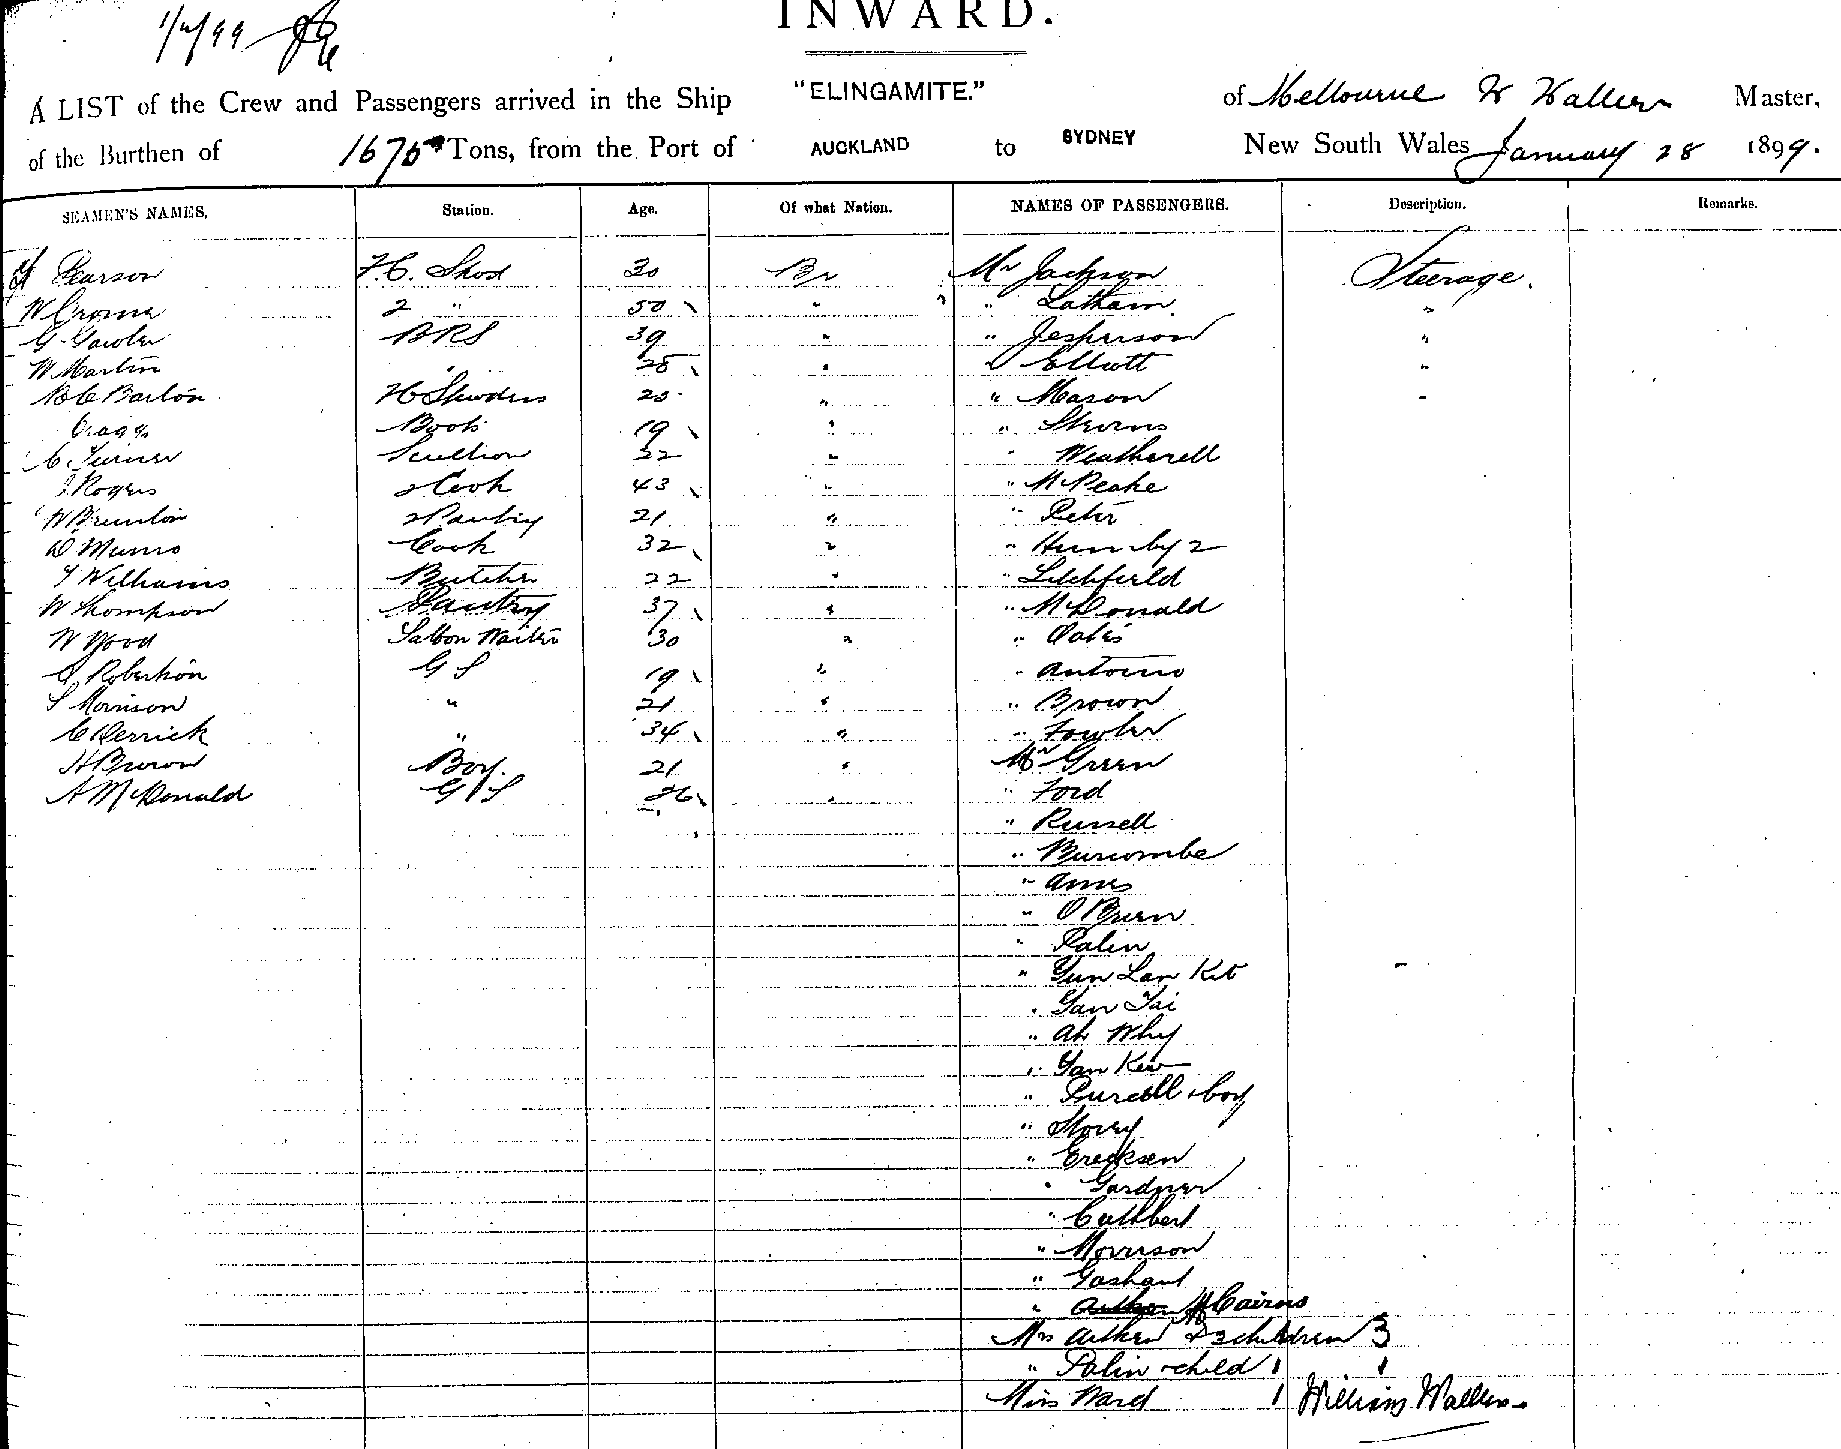 1/2/99
INWARD.
A LIST of the Crew and Passengers arrived in the Ship "ELINGAMITE." of Melbourne W Wallers Master,
of the Burthen of 1675 Tons, from the Port of AUCKLAND to SYDNEY New South Wales January 28 1899.
SEAMEN'S NAMES. Station. Age. Of what Nation. NAMES OF PASSENGERS. Description. Remarks.
Pearson F.C. Stwd 30 Br Mr Jackson Steerage.
W 2 " 50 " " Latham "
G Gawler BRS 39 " " Jesperson "
W Martin " 25 " " Elliott "
Barton 20 " " Mason "
Craggs Boots 19 " " Storms
C Turner Scullion 22 " " Weatherell
J Rogers 2 Cook 43 " " McPeake
W Brunton 2 Pantry 21 " " Peter
D Munro Cook 32 " " Hum by 2
T Williams Butcher 22 " " Litchfield
W Thompson Pantry 37 " " McDonald
W Wood Saloon Waiter 30 " " Oates
Robertson G S 19 " " Antonio
S Morrison " 21 " " Brown
C Derrick " 34 " " Fowler
H Brown Boy. 21 " Mr Green
A McDonald G S 26 " " Ford
" Russell
" Burcombe
" Ames
" O Burn
" Palin
" Yun Lan Kit
" Yan Tai
" Ah Why
" Yan Kew
" Purcell & boy
" Storey
" Ericksen
" Gardner
" Cuthbert
" Morrison
" Gashaul
" McCairns
Mrs Aitken & 3 children 3
" Palin & child 1 1
Miss Ward 1 William Wallers